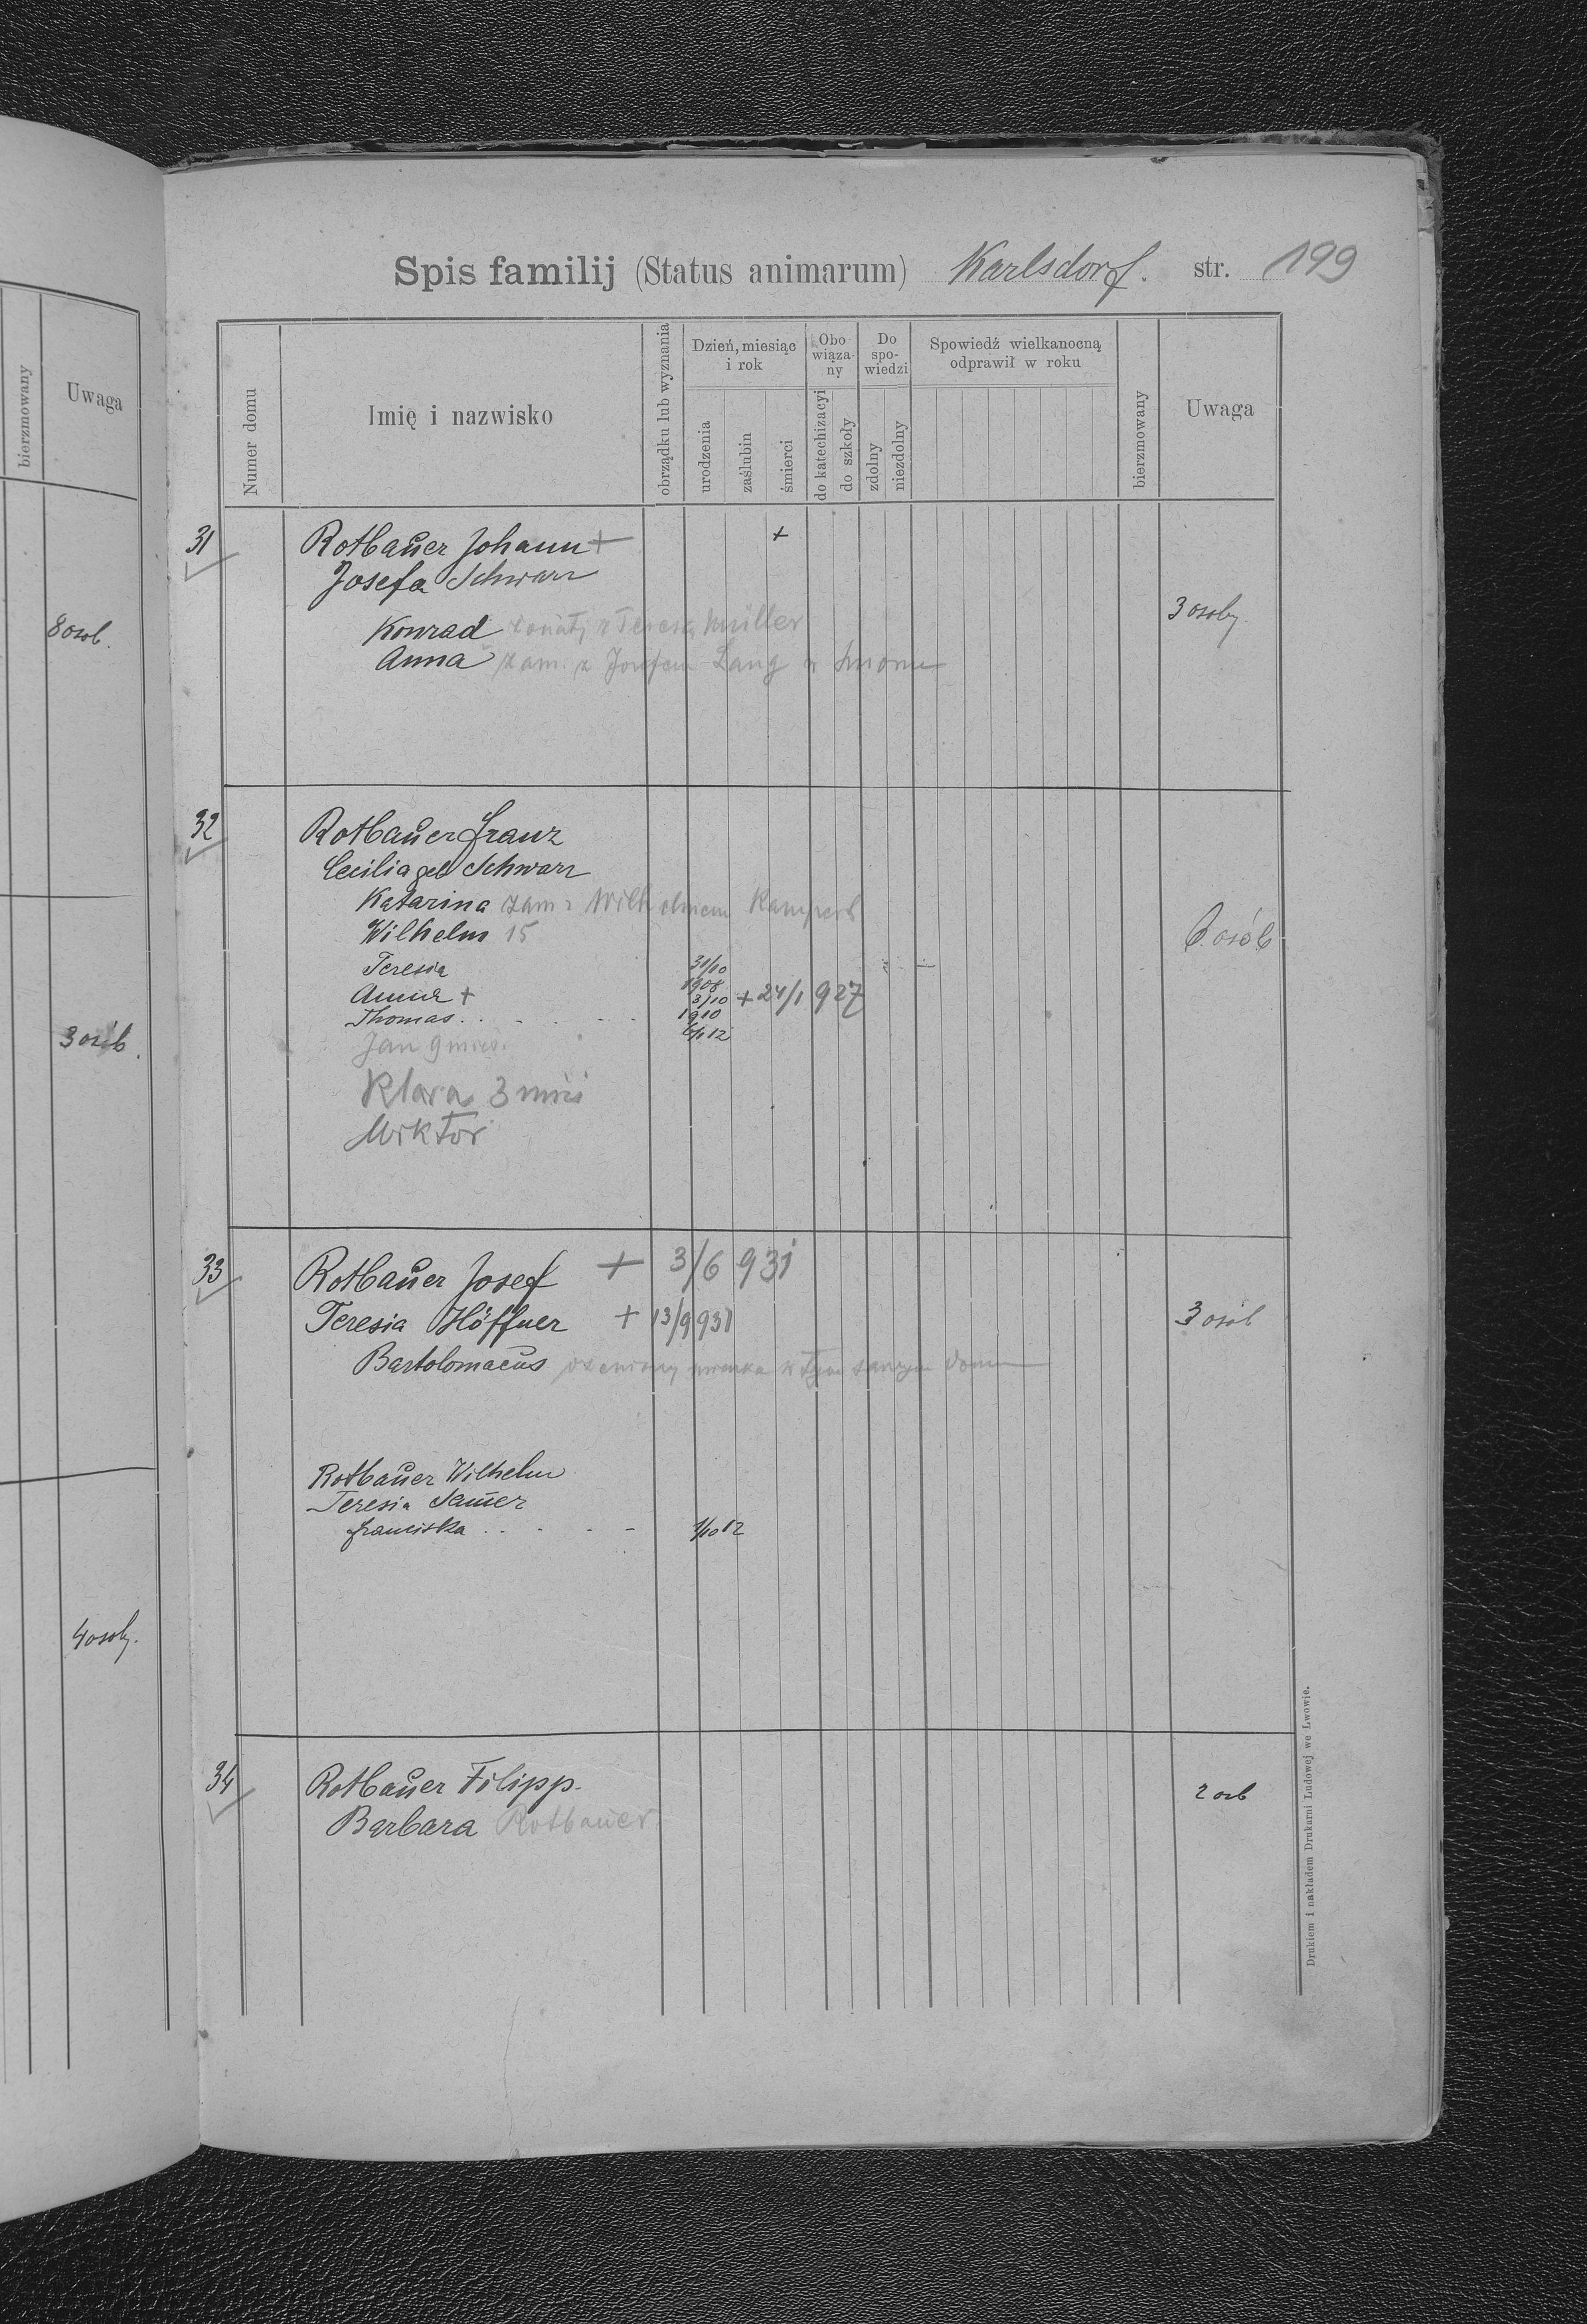 bierzmowany
Uwaga
8 osob.
3 osób.
4 osoby.
Spis familij (Status animarum) Karlsdorf. str. 199
Numer domu
Imię i nazwisko
obrządku lub wyznania
Dzień, miesiąc
i rok
urodzenia
zaślubin
śmierci
Obo
wiąza-
ny
do katechizacyi
do szkoły
Do
spo-
wiedzi
zdolny
niezdolny
Spowiedź wielkanocną
odprawił w roku
bierzmowany
Uwaga
31 Rotbaŭer Johann + +
Josefa Schwarz
Konrad żonaty z Tereską Müller 3 osoby
Anna zam. z Josefem Lang w
32 Rotbaŭer Franz
Cecilia geb Schwarz
Katarina zam z Wilhelmem Kampert
Wilhelm 15 6 osób
Teresia 31/10 1908
Anna + 3/10 1910 + 24/1 927
Thomas . . . . . 6/1 12
Jan 9 mies.
Klara 3 mies
Wiktor
33 Rotbaŭer Josef + 3/6 931
Teresia Höffner + 13/9 931 3 osób
Bartolomaeŭs ożeniony mieszka w tym samym domu
Rotbaŭer Wilhelm
Teresia Saŭer
Franciska . . . . - 1/10 12
34 Rotbaŭer Filipp. 2 osb
Barbara Rotbauer
Drukiem i nakładem Drukarni Ludowej we Lwowie.